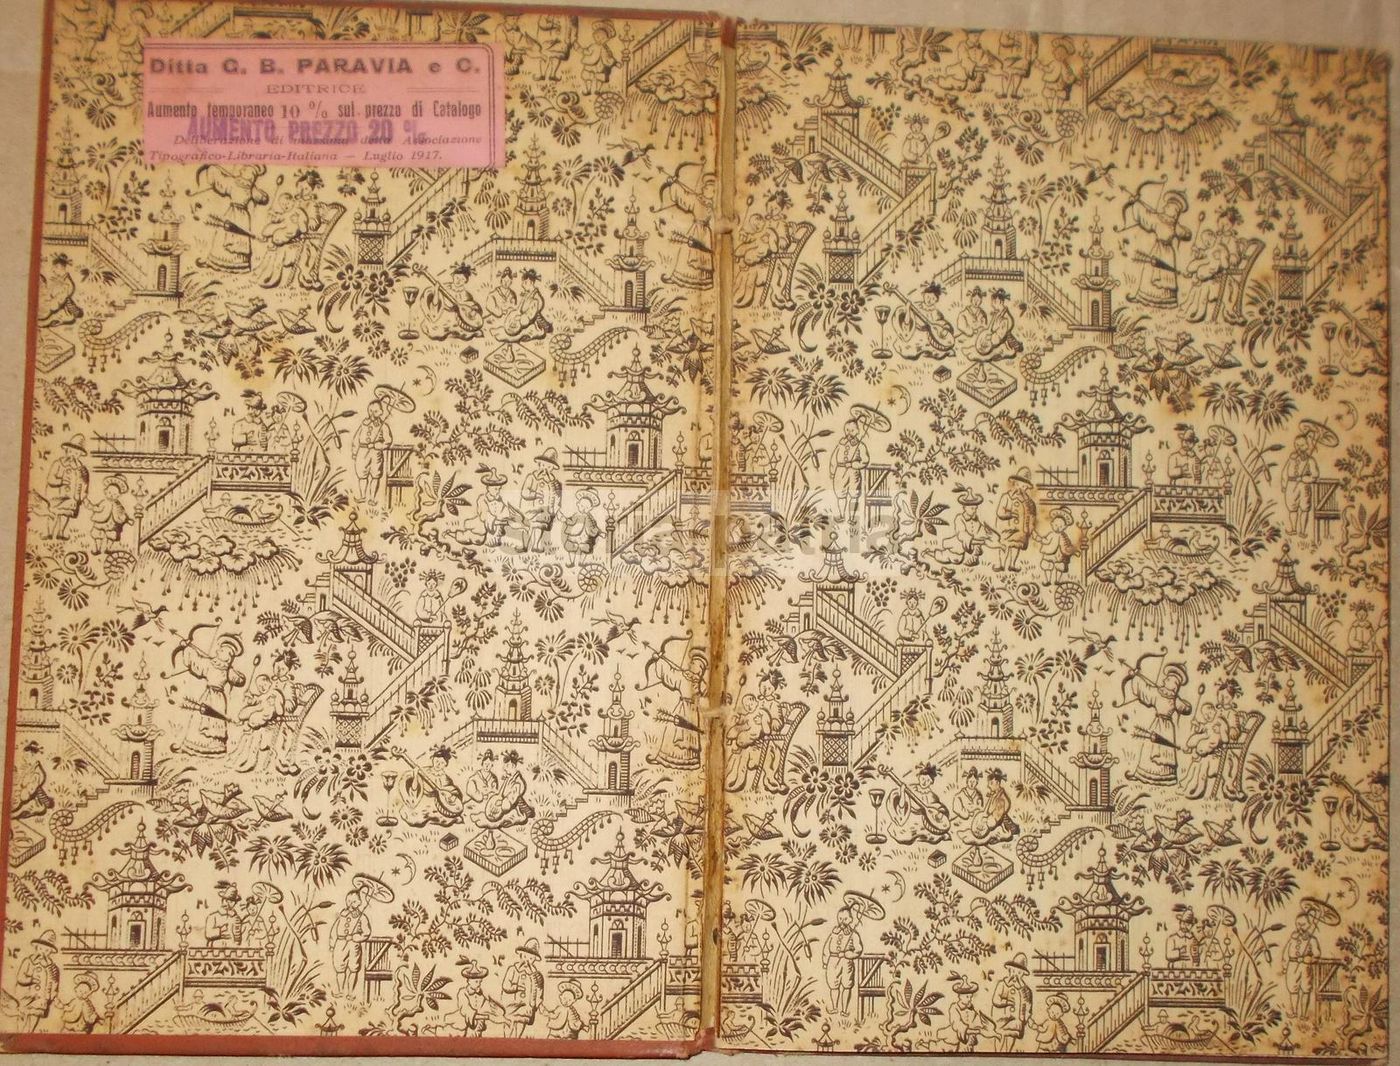 Ditta G. B. PARAVIA e C.
EDITRICE
Aumento temporaneo 10 % sul prezzo di Catalogo
AUMENTO PREZZO 20 %
Deliberazione di massima della Associazione
Tipografico-Libraria-Italiana — Luglio 1917.